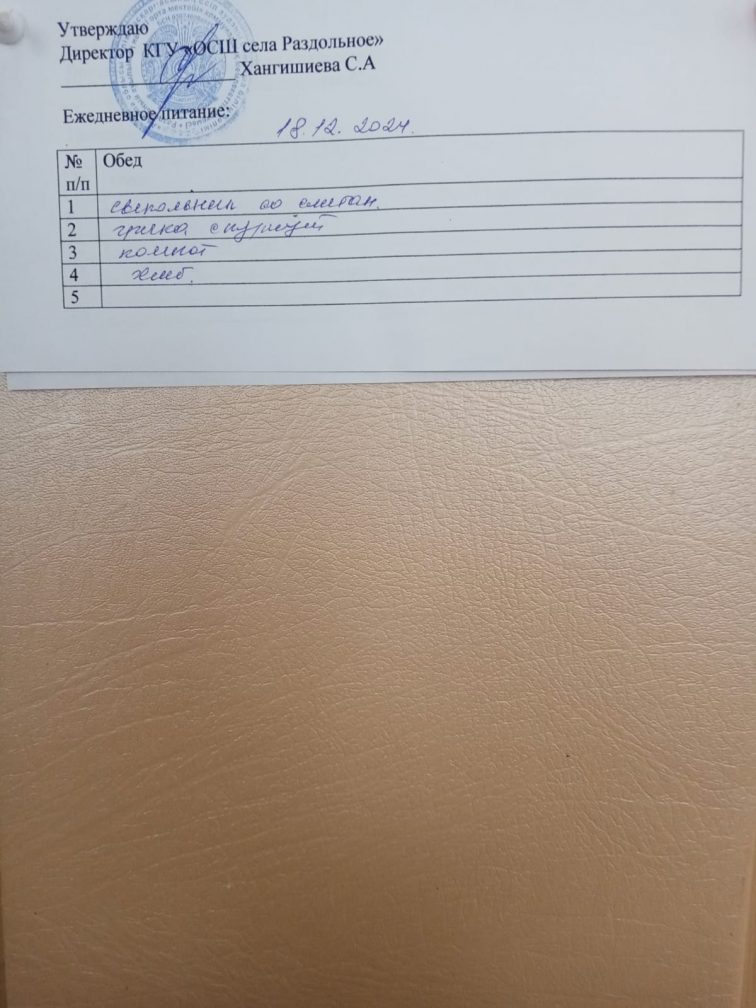 Утверждаю
Директор КГУ «ОСШ села Раздольное»
Хангишиева С.А
Ежедневное питание: 18.12.2024.
№ п/п Обед
1 свекольник со сметан.
2 гречка с курицей
3 компот
4 хлеб.
5